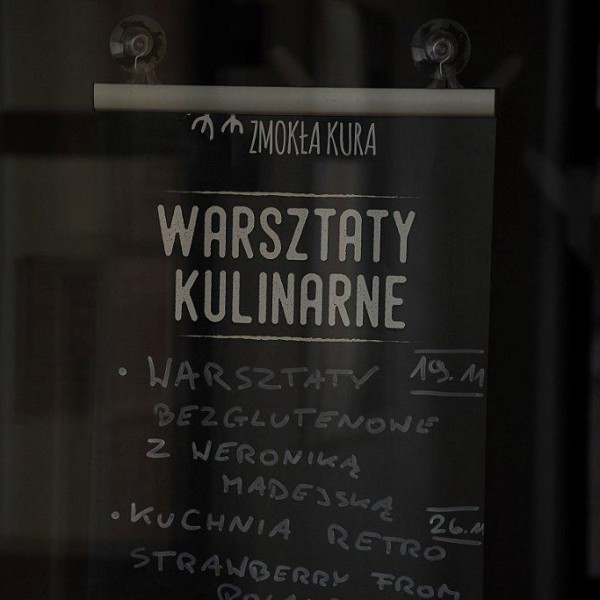 ZMOKŁA KURA
WARSZTATY
KULINARNE
• WARSZTATY 19.11
BEZGLUTENOWE
Z WERONIKĄ
MADEJSKĄ
• KUCHNIA RETRO 26.11
STRAWBERRY FROM